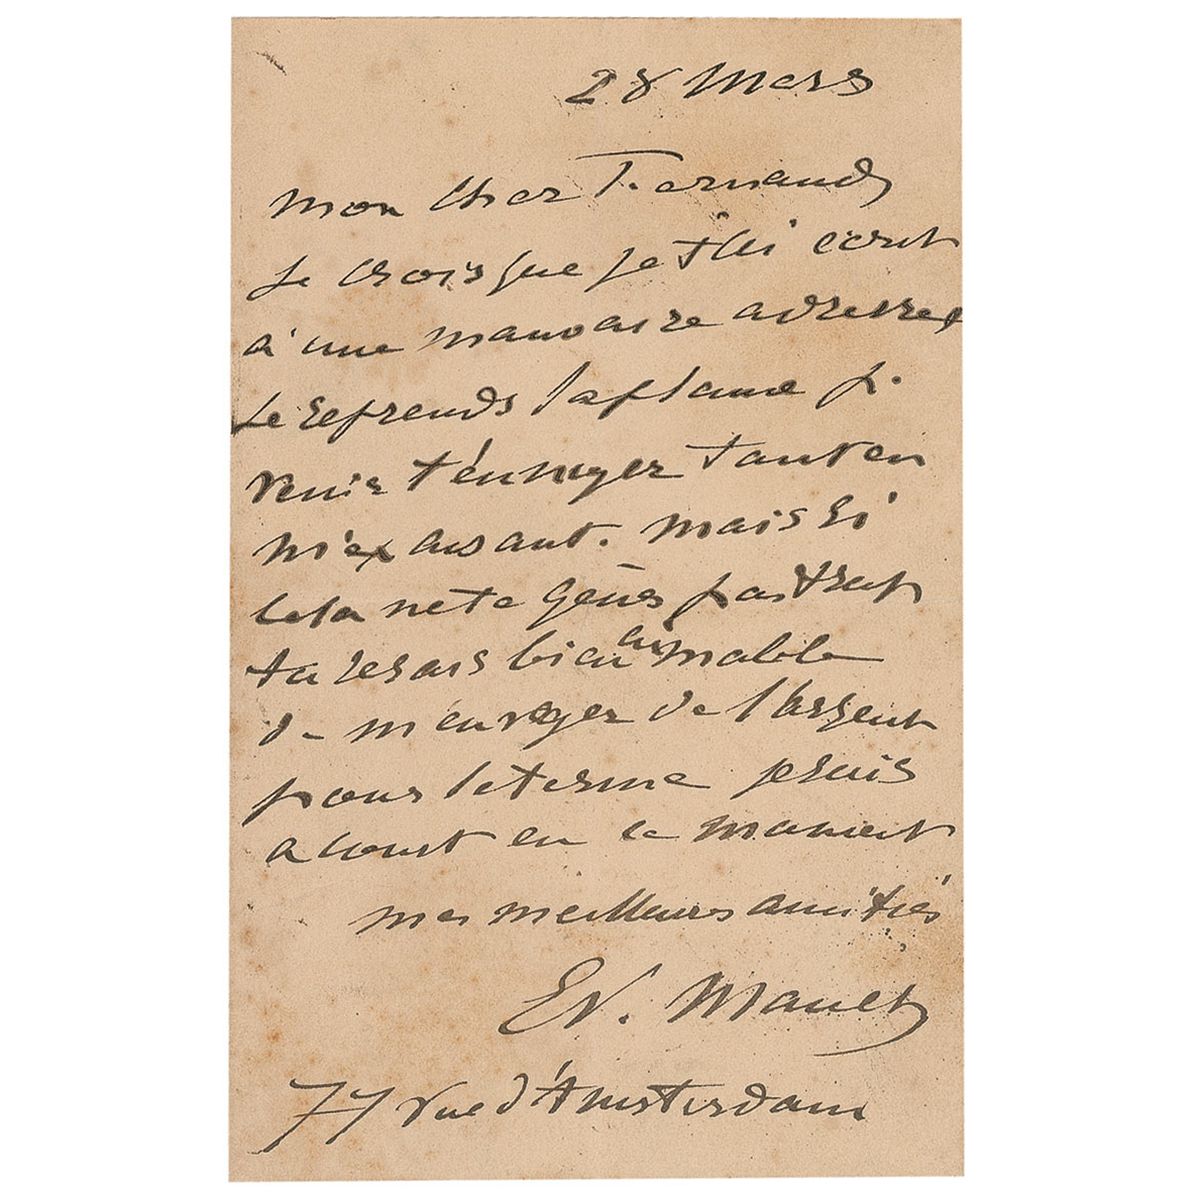 28 Mars
mon cher Fernand
Je crois que je t'ai écrit
à une mauvaise adresse
Je reprends la plume p.
venir t'ennuyer tout en
m'excusant. mais si
cela ne te gêne pas trop
tu serais bien aimable
de m'envoyer de l'argent
pour le terme je suis
à court en ce moment
mes meilleures amitiés
Ed. Manet
77 rue d'Amsterdam